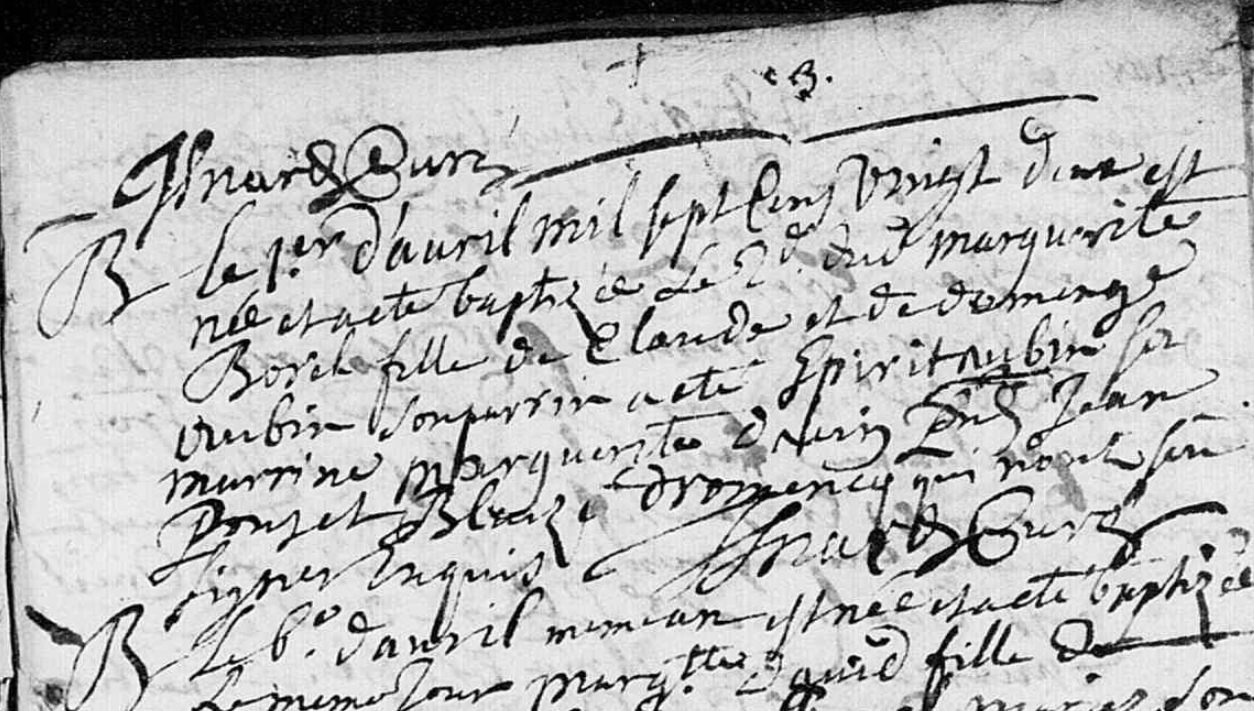 3.
Isnard Curé
B Le 1.er d'auril mil sept cens vingt deux est
née et a eté baptizée Le 2.d dud marguerite
Borel fille de Claude et de domenge
Aubin son parrin a eté Espirit aubin sa
marrine marguerite pnts Jean
Ponset Blaize qui n'ont sçu
signer Enquis Isnard Curé
B Le 6.e d'auril meme an est née et a eté baptizée
Le meme Jour marg.tte dauid fille de